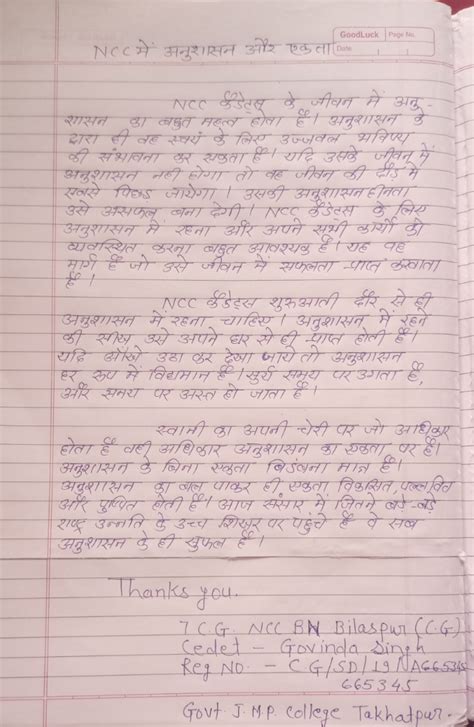 GoodLuck Page No.
Date
NCC में अनुशासन और एकता
NCC कैडेट्स के जीवन में अनु-
शासन का बहुत महत्व होता है। अनुशासन के
द्वारा ही वह स्वयं के लिए उज्जवल भविष्य
की संभावना कर सकता है। यदि उसके जीवन में
अनुशासन नहीं होगा तो वह जीवन की दौड में
सबसे पिछड़ जायेगा। उसकी अनुशासनहीनता
उसे असफल बना देगी। NCC कैडेट्स के लिए
अनुशासन में रहना और अपने सभी कार्यो को
व्यवस्थित करना बहुत आवश्यक है। यह वह
मार्ग है जो उसे जीवन में सफलता प्राप्त करवाता
है।
NCC कैडेट्स शुरुआती दौर से ही
अनुशासन में रहना चाहिए। अनुशासन में रहने
की सीख उसे अपने घर से ही प्राप्त होती है।
यदि आँखे उठा कर देखा जाये तो अनुशासन
हर रूप में विद्यमान है। सुर्य समय पर उगता है,
और समय पर अस्त हो जाता है।
स्वामी का अपनी चेरी पर जो अधिकार
होता है वही अधिकार अनुशासन का एकता पर है।
अनुशासन के बिना एकता बिडंवना मात्र है।
अनुशासन का बल पाकर ही एकता विकसित, पल्लवित
और पुष्पित होती है। आज संसार में जितने बडे-बडे
राष्ट्र उन्नति के उच्च शिखर पर पहुंचे है वे सब
अनुशासन के ही सुफल है।
Thanks you.
7 C.G. NCC BN Bilaspur (C.G)
Cedet - Govinda Singh
Reg NO. - C G/SD/19/A665345
665345
Govt J.M.P. college Takhatpur.